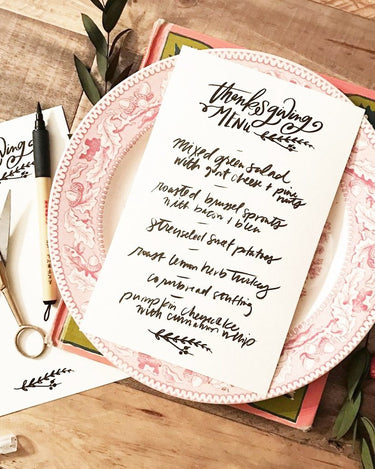 thanksgiving
MENU
mixed green salad
with goat cheese + pine
nuts
roasted brussel sprouts
with bacon + bleu
streuseled sweet potatoes
roast lemon herb turkey
cornbread stuffing
pumpkin cheesecake
with cinnamon whip